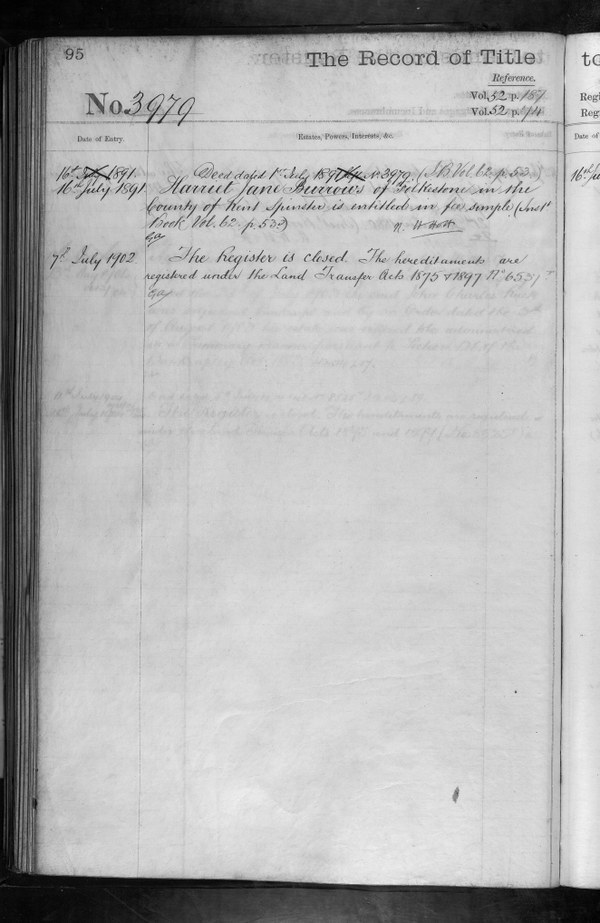 95
The Record of Title
Reference.
No. 3979
Vol. 52 p. 187
Vol. 52 p. 194
Date of Entry.
Estates, Powers, Interests, &c.
16th July 1891. Deed dated 1st July 1891 No. 3979. (I.B. Vol. 62. p. 53.)
16th July 1891 Harriet Jane Burrows of Folkestone in the
County of Kent Spinster is entitled in fee simple (Inst
Book Vol. 62. p. 53)
7th July 1902. The Register is closed. The hereditaments are
registered under the Land Transfer Acts 1875 & 1897 No
to
Regi
Reg
Date of
16th Ju